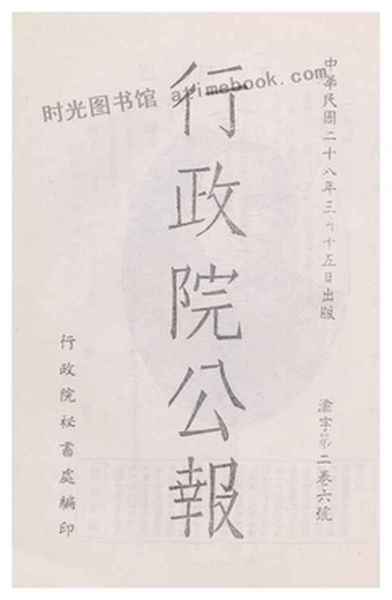 中華民國二十八年三月十五日出版
渝字第二卷六號
行政院公報
行政院祕書處編印
时光图书馆 atimebook.com